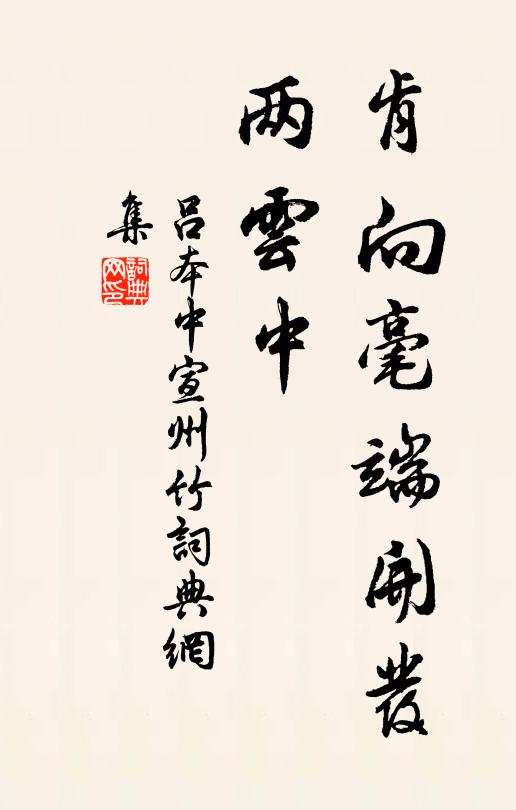 肯向毫端開發
两雲中
吕本中宣州竹詞典網
集
詞典网印